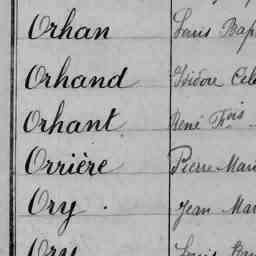 Orhan Louis Bap
Orhand Isidore Cele
Orhant René Fçois
Orrière Pierre Mari
Ory . Jean Mar
Ory Louis Bap